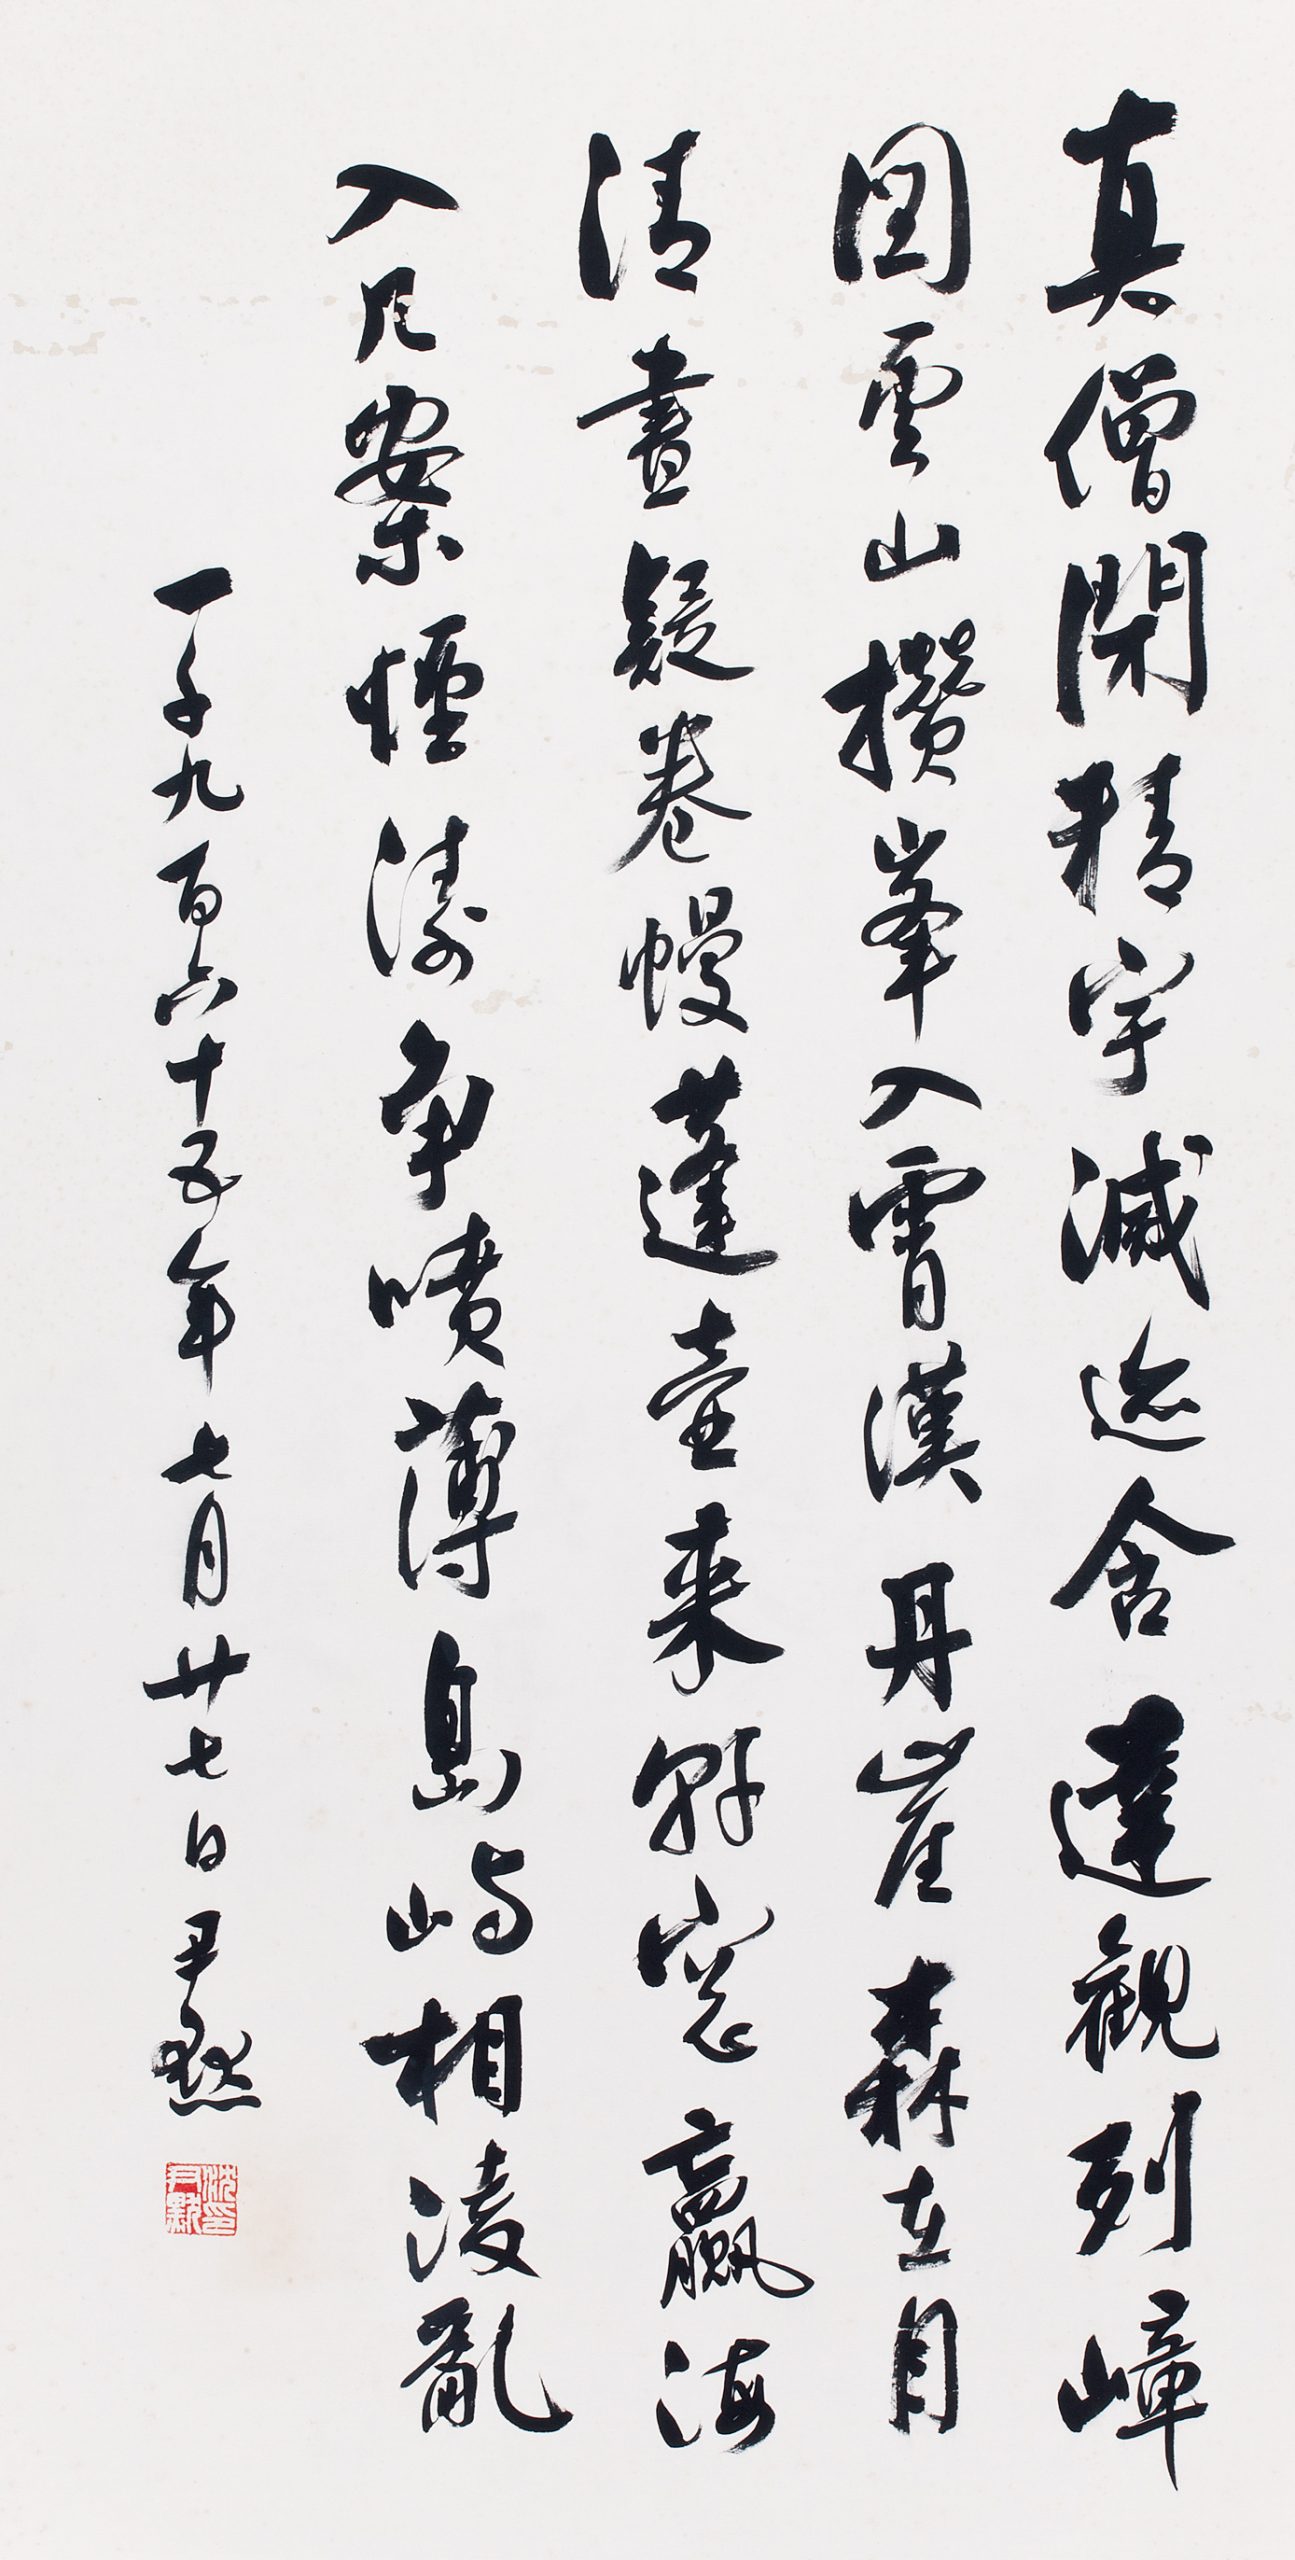 真僧閑精宇滅迹含達觀列嶂
圖雲山攢峯入霄漢丹崖森在目
清晝疑卷幔蓬壺来軒窓瀛海
入几案煙濤争噴薄島嶼相凌亂
一千九百六十五年七月廿七日尹默
沈尹默印